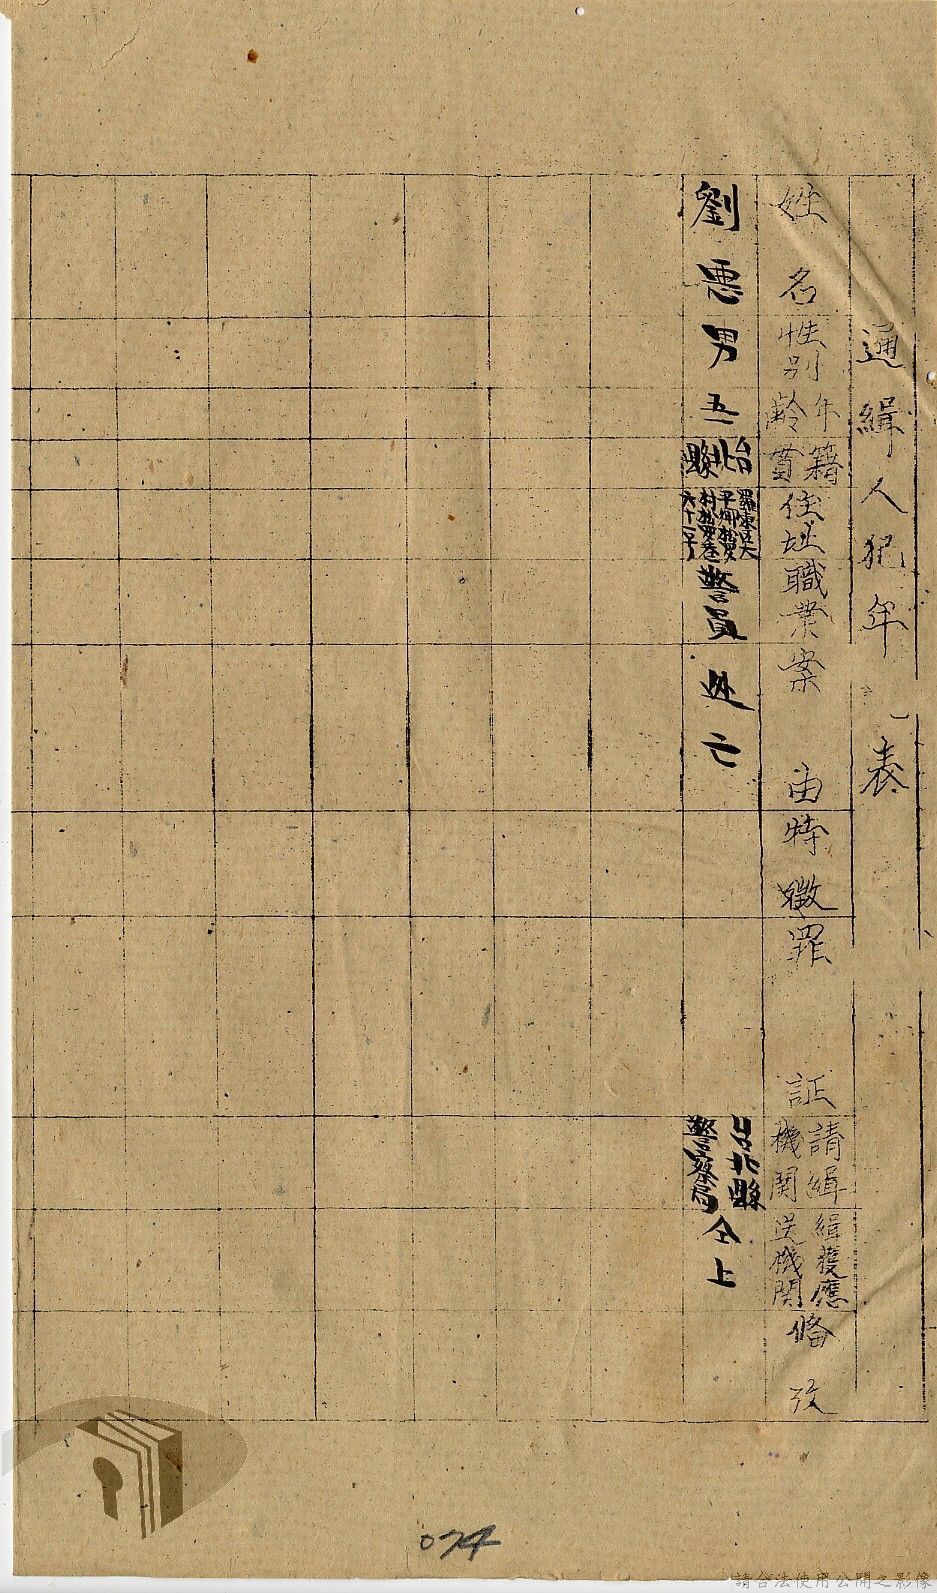 通緝人犯年 表
姓名
性別
年齡
籍貫
住址
職業
案由
特徵
罪証
請緝機関
緝獲應送機関
俻攷
劉 男
台北縣
羅東區大
平鄉
村
六十
警員
亡
台北縣警察局
仝上
074
請合法使用公開之影像